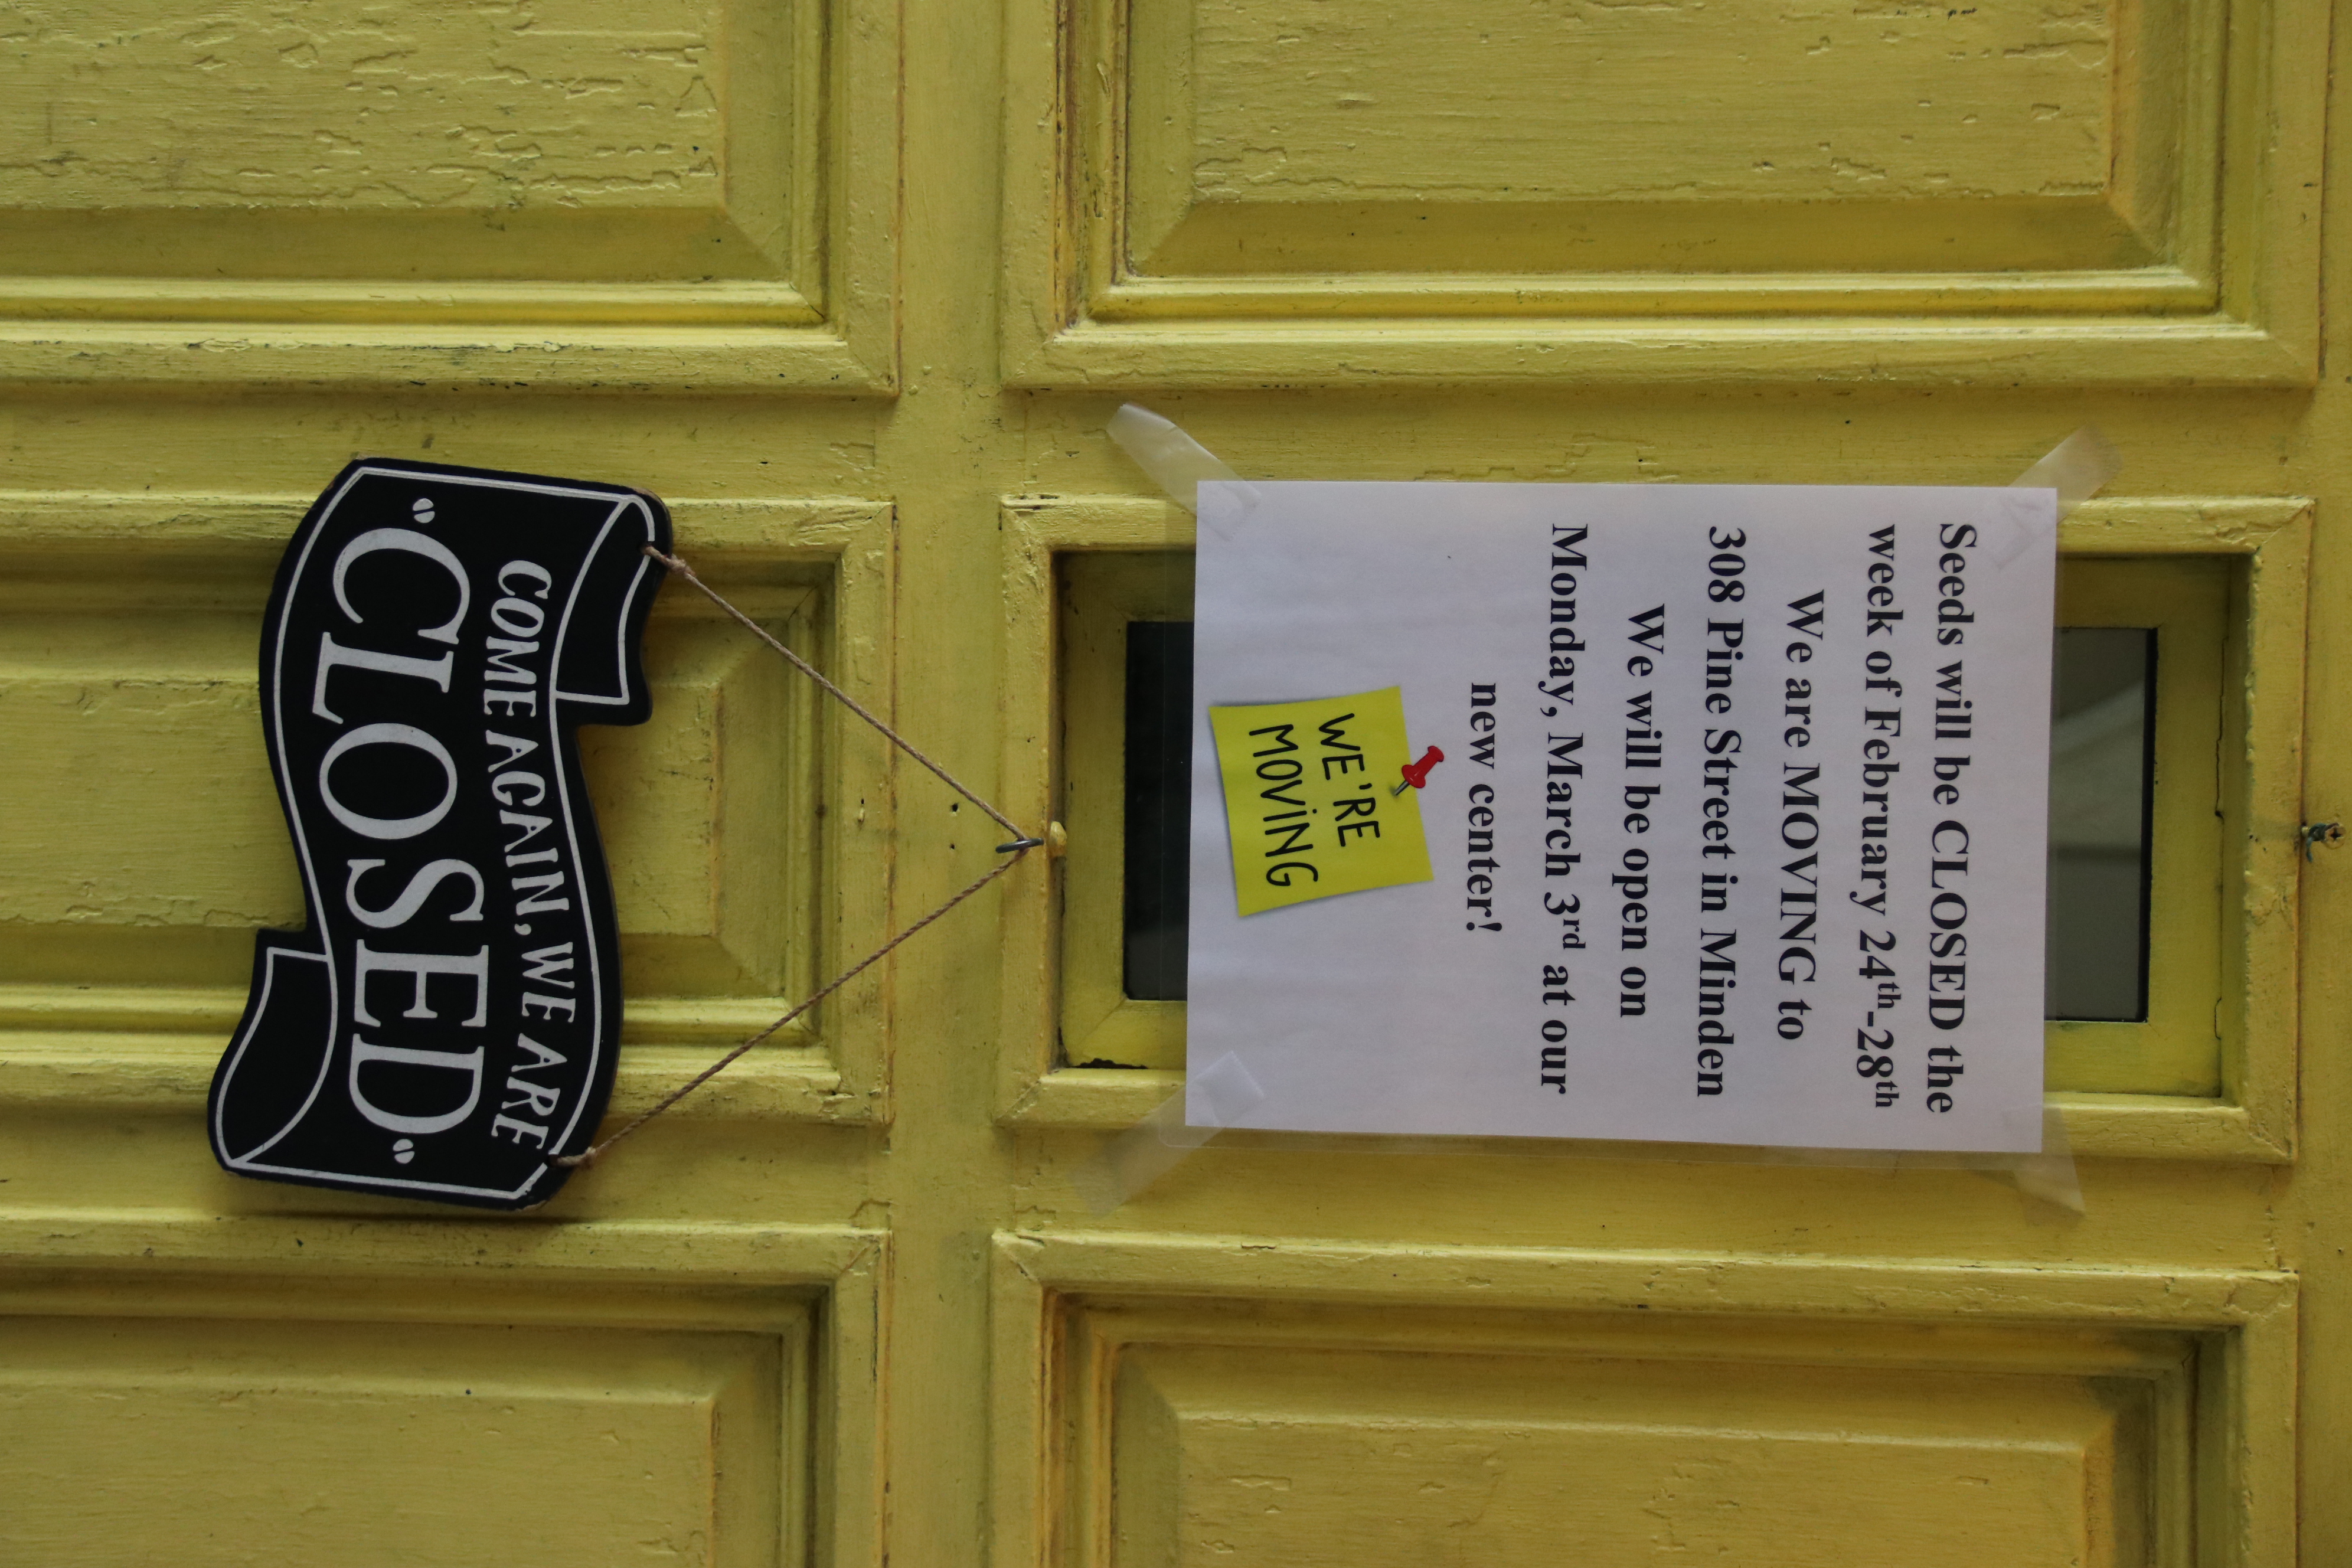 Seeds will be CLOSED the
week of February 24th-28th
We are MOVING to
308 Pine Street in Minden
We will be open on
Monday, March 3rd at our
new center!
WE'RE
MOVING
COME AGAIN, WE ARE
CLOSED